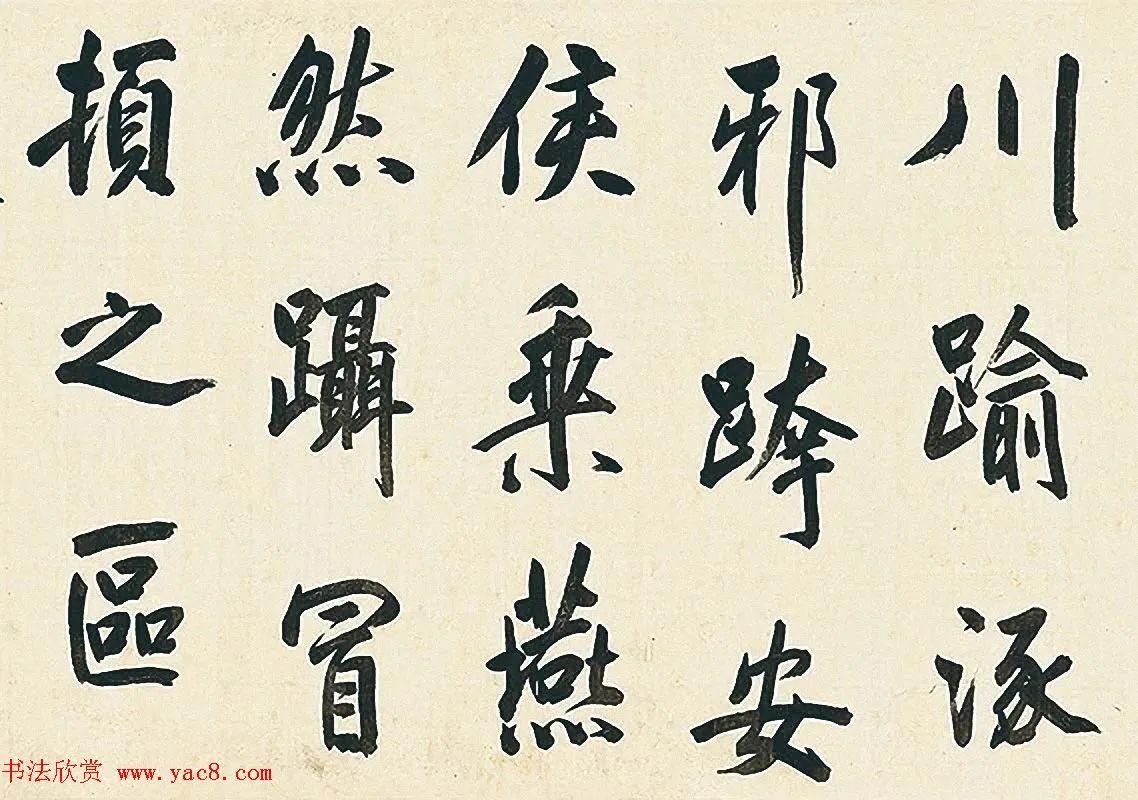 川踰涿
邪跨安
侯乘燕
然躡冒
頓之區
书法欣赏 www.yac8.com